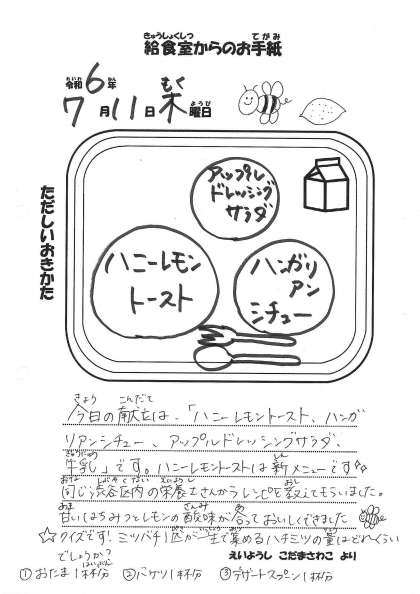 給食室からのお手紙
令和6年
7月11日木曜日
ただしいおきかた
アップルドレッシングサラダ
ハニーレモントースト
ハンガリアンシチュー
今日の献立は、「ハニーレモントースト、ハンガ
リアンシチュー、アップルドレッシングサラダ、
牛乳」です。ハニーレモントーストは新メニューです☆
同じ渋谷区内の栄養士さんからレシピを教えてもらいました。
甘いはちみつとレモンの酸味が合っておいしくできました
☆クイズです!ミツバチ1匹が一生で集めるハチミツの量はどれくらい
でしょうか?
えいようし こだまさわこ より
①おたま1杯分 ②バケツ1杯分 ③デザートスプーン1杯分